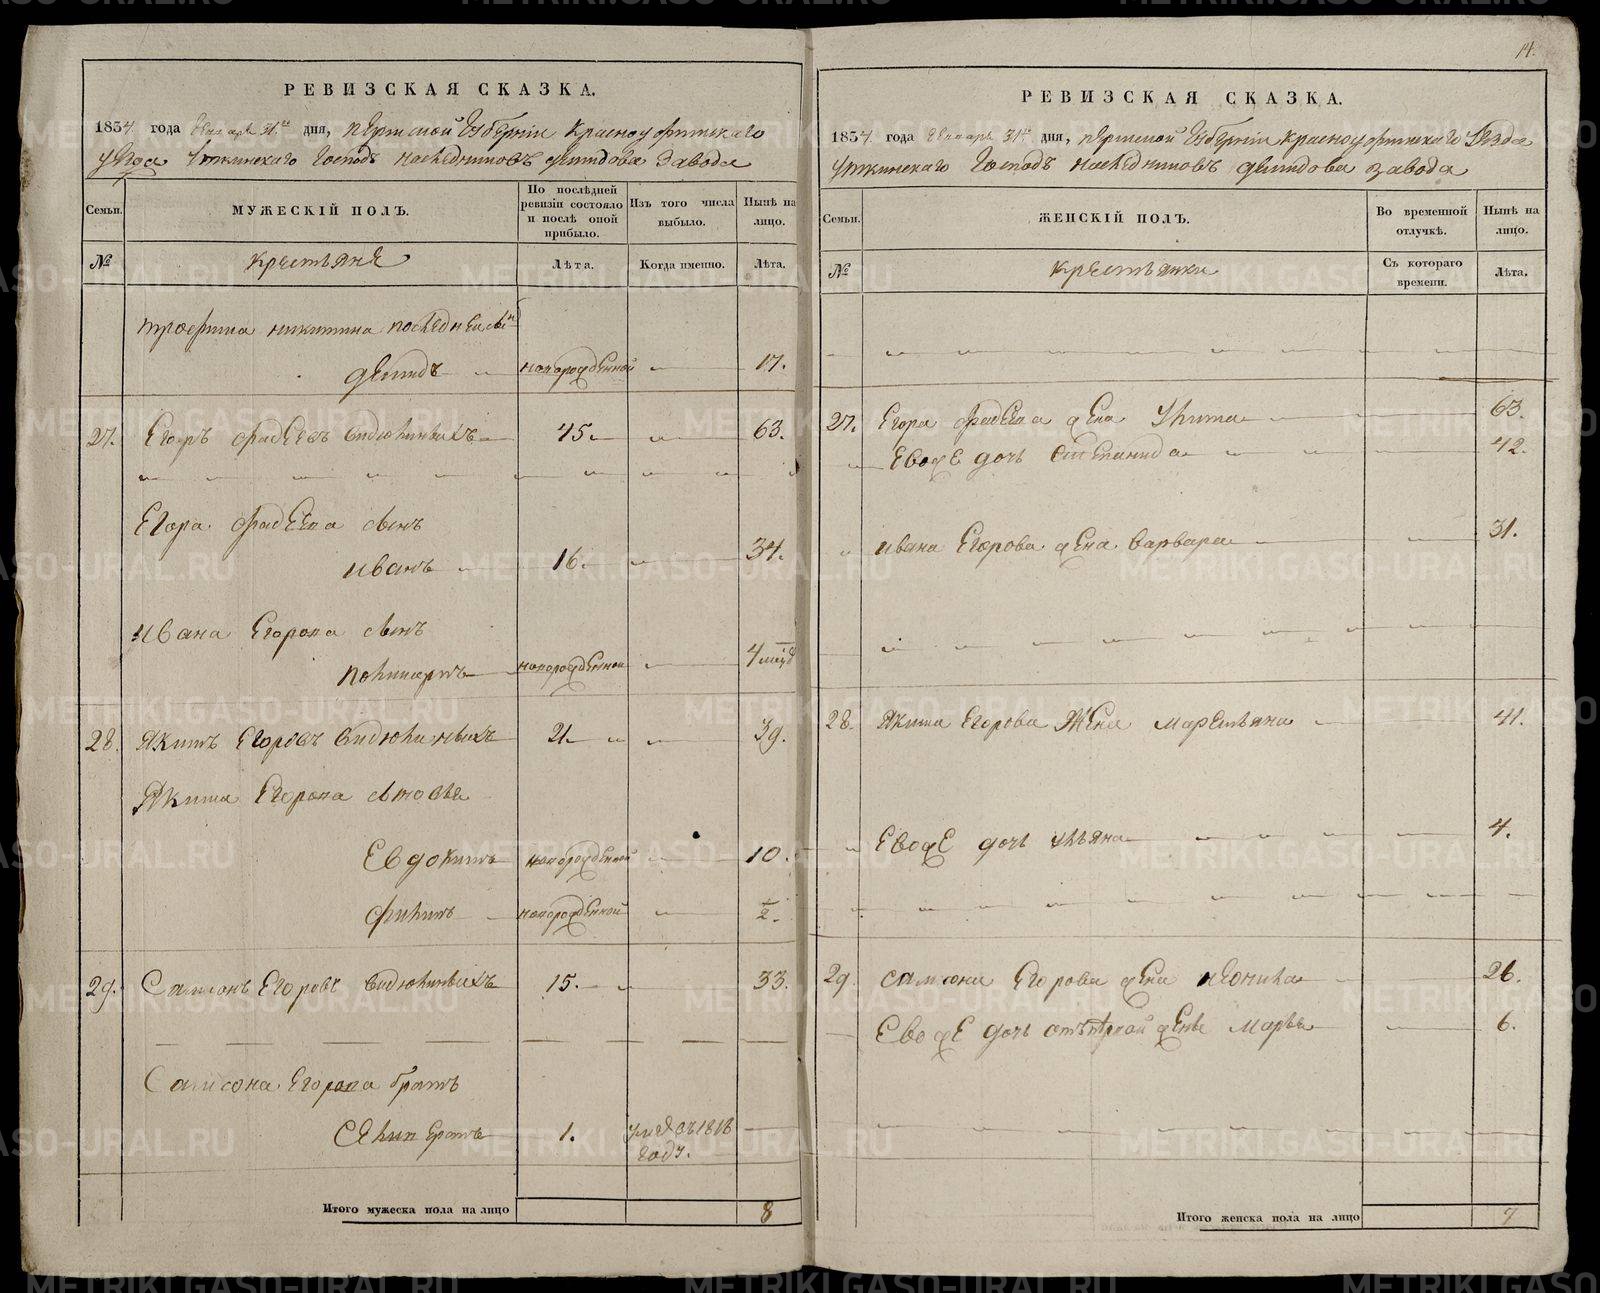 РЕВИЗСКАЯ СКАЗКА.
1834 года Генваря 31го дня, Пермской Губернии Красноуфимскаго
уезда Уткинскаго Господъ наследниковъ Демидова завода
Семьи.
МУЖЕСКІЙ ПОЛЪ.
По послѣдней ревизіи состояло и послѣ оной прибыло.
Изъ того числа выбыло.
Нынѣ на лицо.
№
Крестьяне
Лѣта.
Когда именно.
Лѣта.
Трофима Никитина
Демидъ новорожденной 17.
27. Егоръ Фадеевъ 45 63.
Егора Фадеева сынъ
Иванъ 16. 34.
Ивана Егорова сынъ
новорожденной 4
28. Якимъ Егоровъ 21 39.
Якима Егорова сыновья
Евдокимъ новорожденной 10.
новорожденной 1/2.
29. Самсонъ Егоровъ 15. 33.
Самсона Егорова братъ
1. 1818 году.
Итого мужеска пола на лицо 8
14.
РЕВИЗСКАЯ СКАЗКА.
1834 года Генваря 31го дня, Пермской Губернии Красноуфимскаго Уезда
Уткинскаго Господъ наследниковъ Демидова завода
Семьи.
ЖЕНСКІЙ ПОЛЪ.
Во временной отлучкѣ.
Нынѣ на лицо.
№
Крестьянки
Съ котораго времени.
Лѣта.
27. Егора Фадеева жена 63.
Евоже дочь Степанида 42.
Ивана Егорова жена Варвара 31.
28. Якима Егорова жена Маремьяна 41.
Евоже дочь Ульяна 4.
29. Самсона Егорова жена 26.
Евоже дочь отъ первой жены Марья 6.
Итого женска пола на лицо 7
METRIKI.GASO-URAL.RU